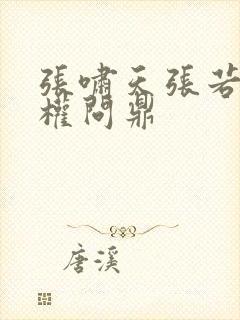 張嘯天張若
權問鼎
唐溪